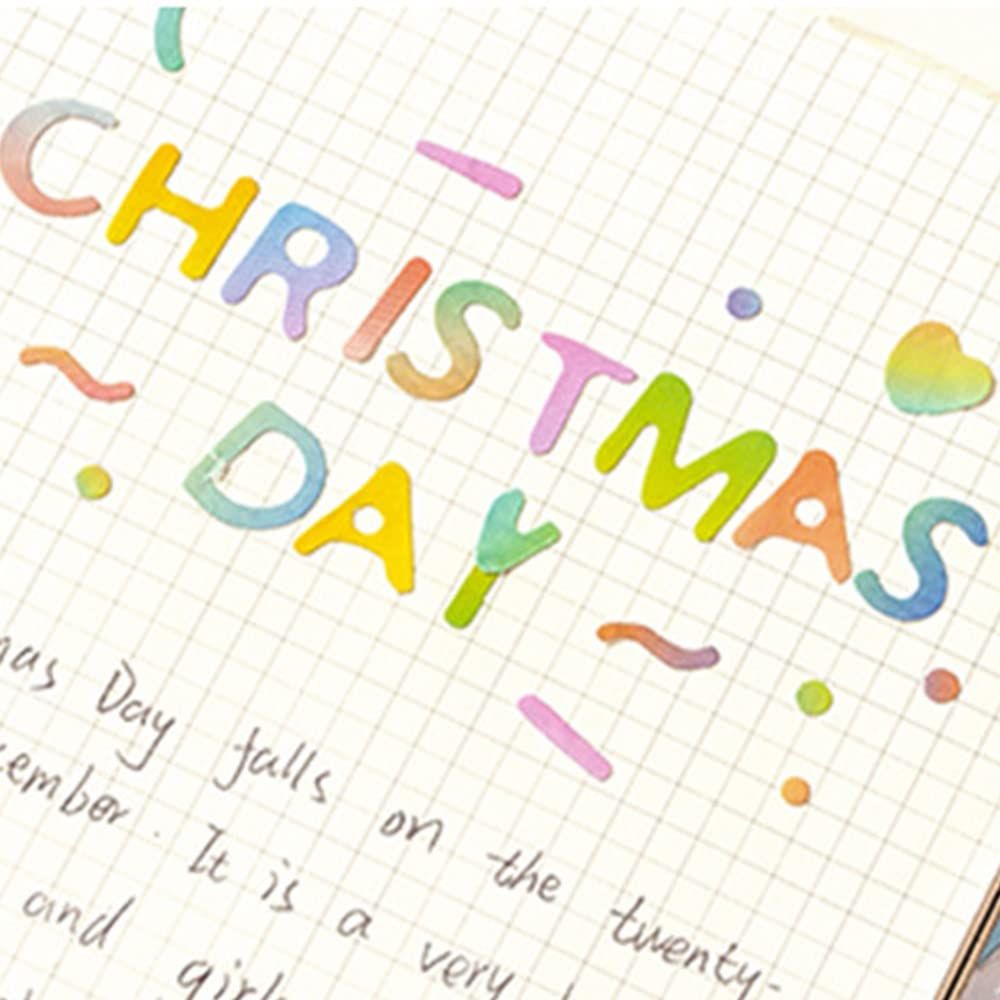 CHRISTMAS
DAY
mas Day falls on the twenty-
cember. It is a very
and girl